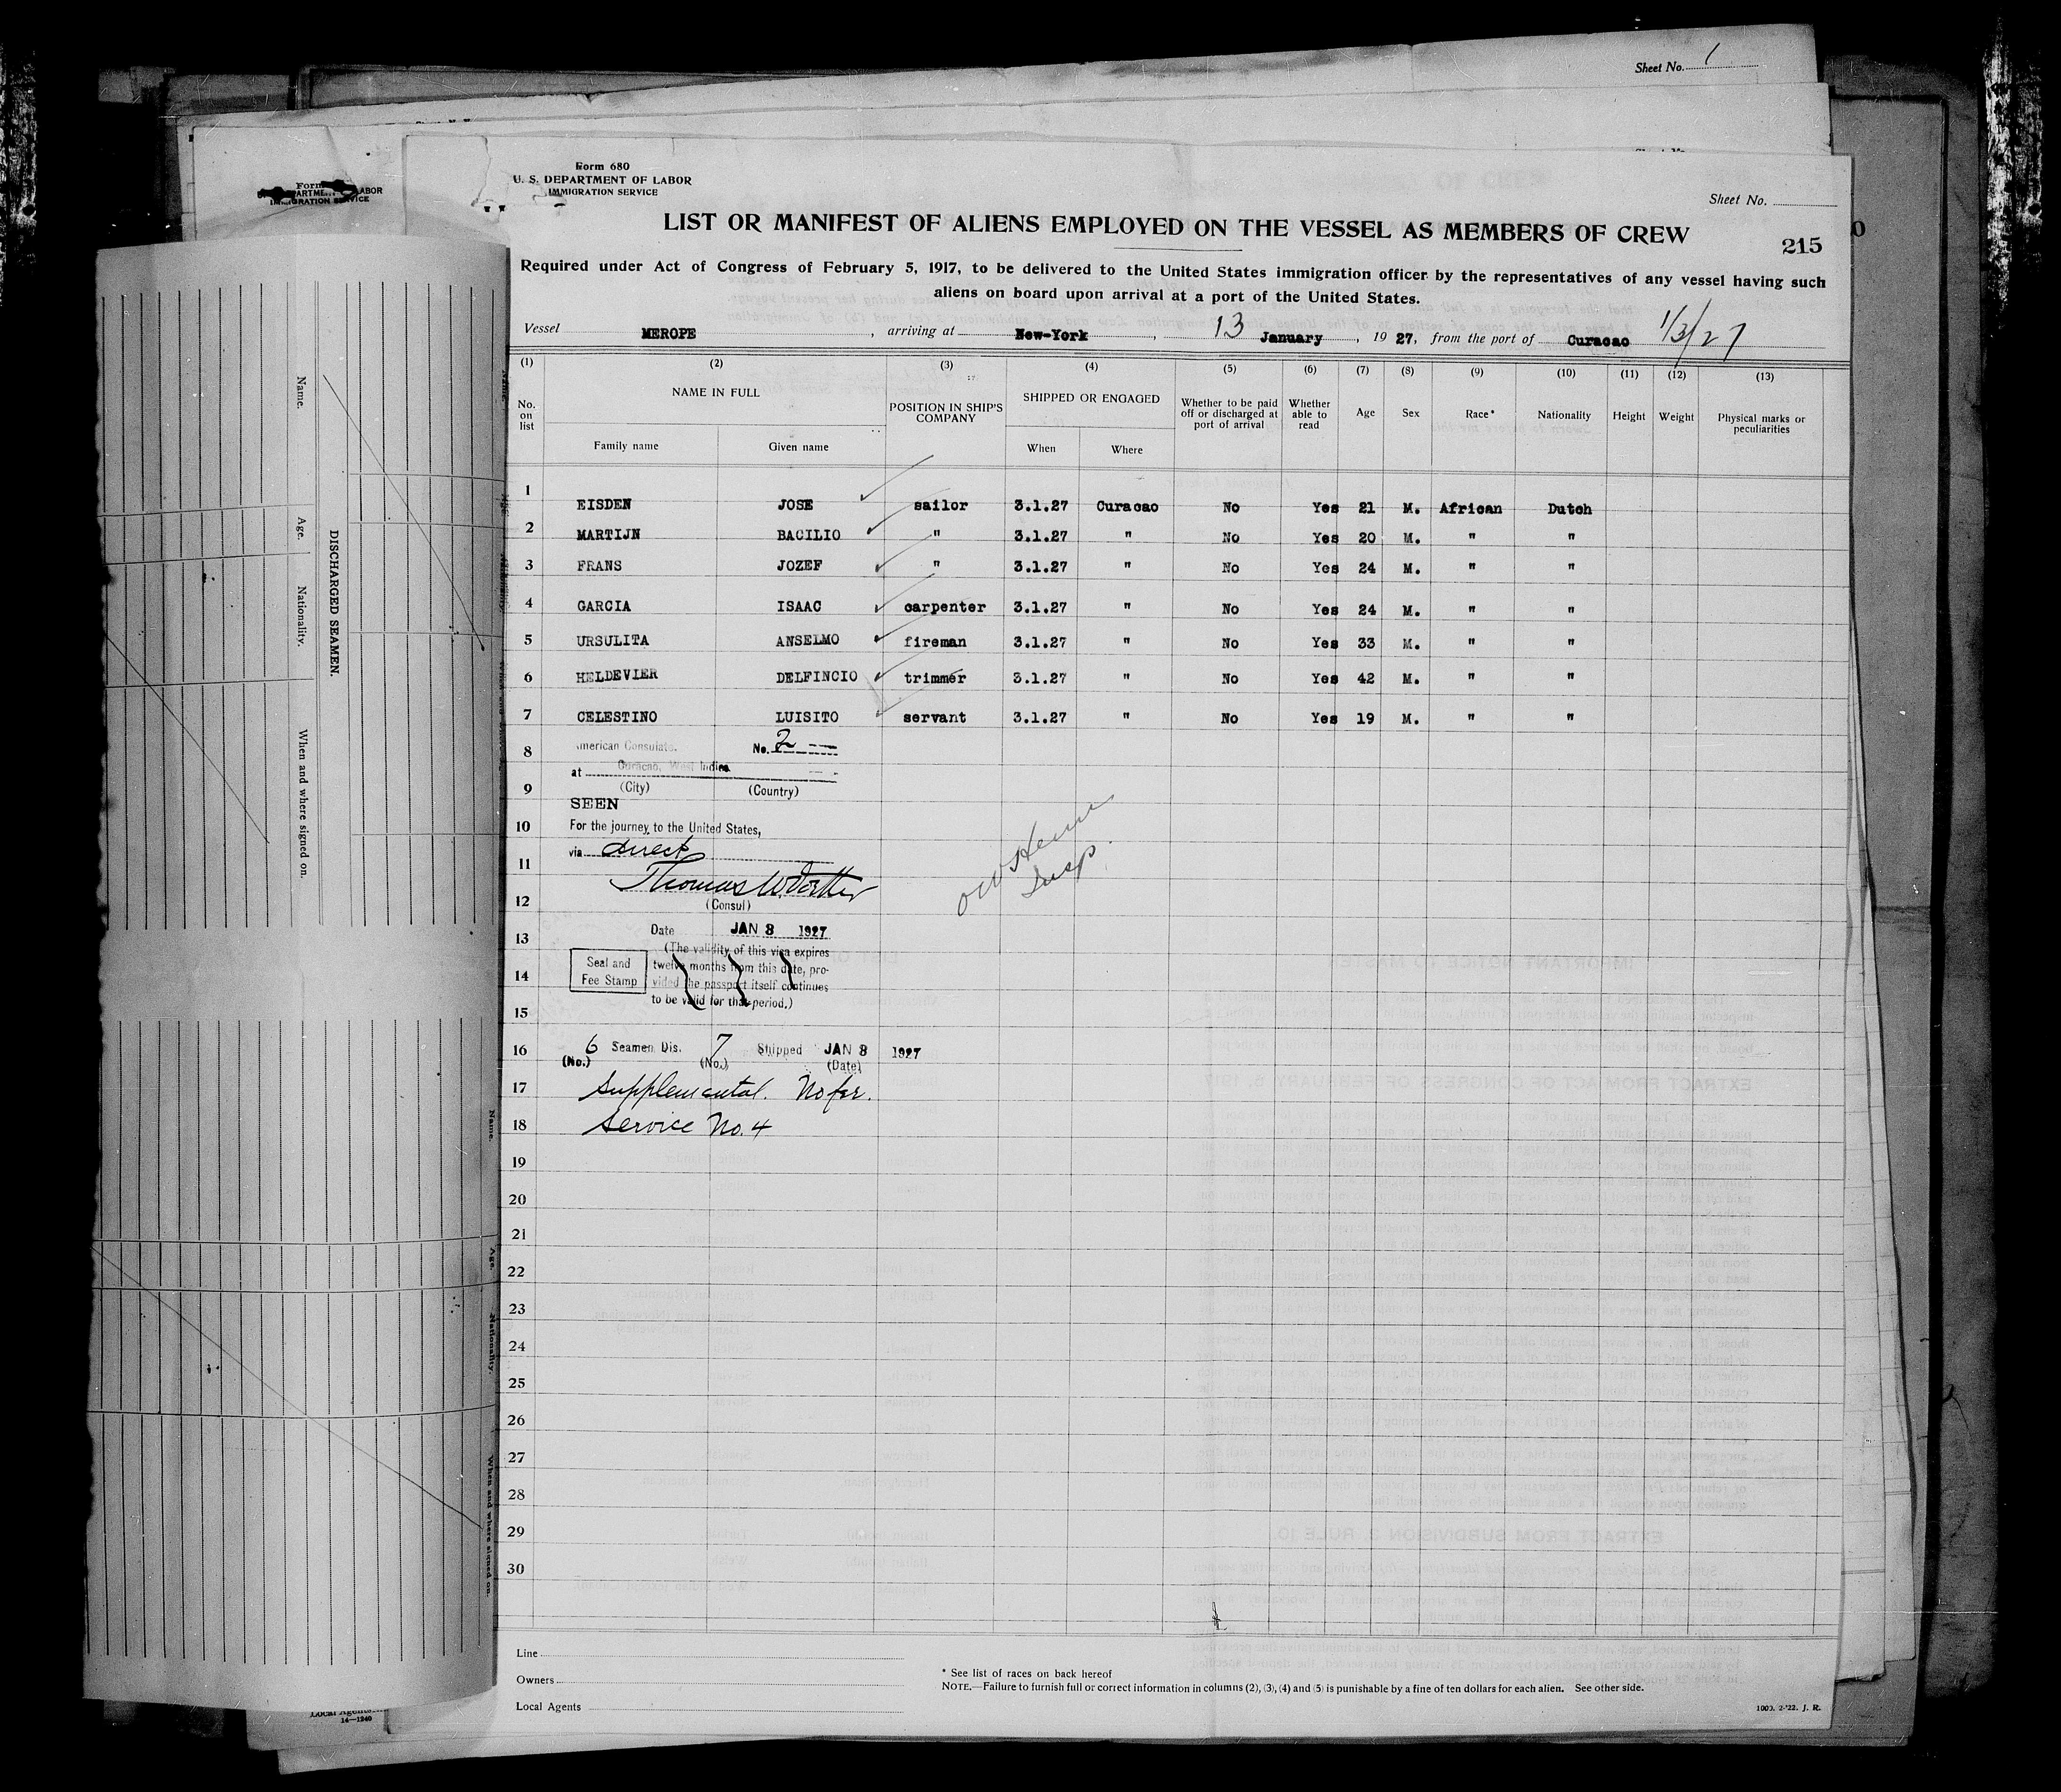 Sheet No. 1
Form 680
U. S. DEPARTMENT OF LABOR
IMMIGRATION SERVICE
Sheet No.
LIST OR MANIFEST OF ALIENS EMPLOYED ON THE VESSEL AS MEMBERS OF CREW
215
Required under Act of Congress of February 5, 1917, to be delivered to the United States immigration officer by the representatives of any vessel having such
aliens on board upon arrival at a port of the United States.
Vessel MEROPE, arriving at New-York, 13 January, 19 27, from the port of Curacao 1/3/27
(1) (2) (3) (4) (5) (6) (7) (8) (9) (10) (11) (12) (13)
No. on list NAME IN FULL POSITION IN SHIP'S COMPANY SHIPPED OR ENGAGED Whether to be paid off or discharged at port of arrival Whether able to read Age Sex Race* Nationality Height Weight Physical marks or peculiarities
Family name Given name When Where
1 EISDEN JOSE sailor 3.1.27 Curacao No Yes 21 M. African Dutch
2 MARTIJN BACILIO " 3.1.27 " No Yes 20 M. " "
3 FRANS JOZEF " 3.1.27 " No Yes 24 M. " "
4 GARCIA ISAAC carpenter 3.1.27 " No Yes 24 M. " "
5 URSULITA ANSELMO fireman 3.1.27 " No Yes 33 M. " "
6 HELDEVIER DELFINCIO trimmer 3.1.27 " No Yes 42 M. " "
7 CELESTINO LUISITO servant 3.1.27 " No Yes 19 M. " "
8 American Consulate. No. 2
at Curacao, West Indies
9 (City) (Country)
SEEN
10 For the journey to the United States,
via direct
11 Thomas W.
12 (Consul)
13 Date JAN 3 1927
(The validity of this visa expires
14 Seal and Fee Stamp twelve months from this date, pro-
vided the passport itself continues
to be valid for that period.)
15
16 6 Seamen Dis. 7 Shipped JAN 3 1927
(No.) (No.) (Date)
17 Supplemental. No fee.
18 Service No. 4
19
20
21
22
23
24
25
26
27
28
29
30
Insp.
Line
Owners
Local Agents
* See list of races on back hereof
NOTE.—Failure to furnish full or correct information in columns (2), (3), (4) and (5) is punishable by a fine of ten dollars for each alien. See other side.
1000. 2-'22. J. R.
DISCHARGED SEAMEN.
Name. Age. Nationality. When and where signed on.
Name. Age. Nationality. When and where signed on.
Local Agents
14—1240